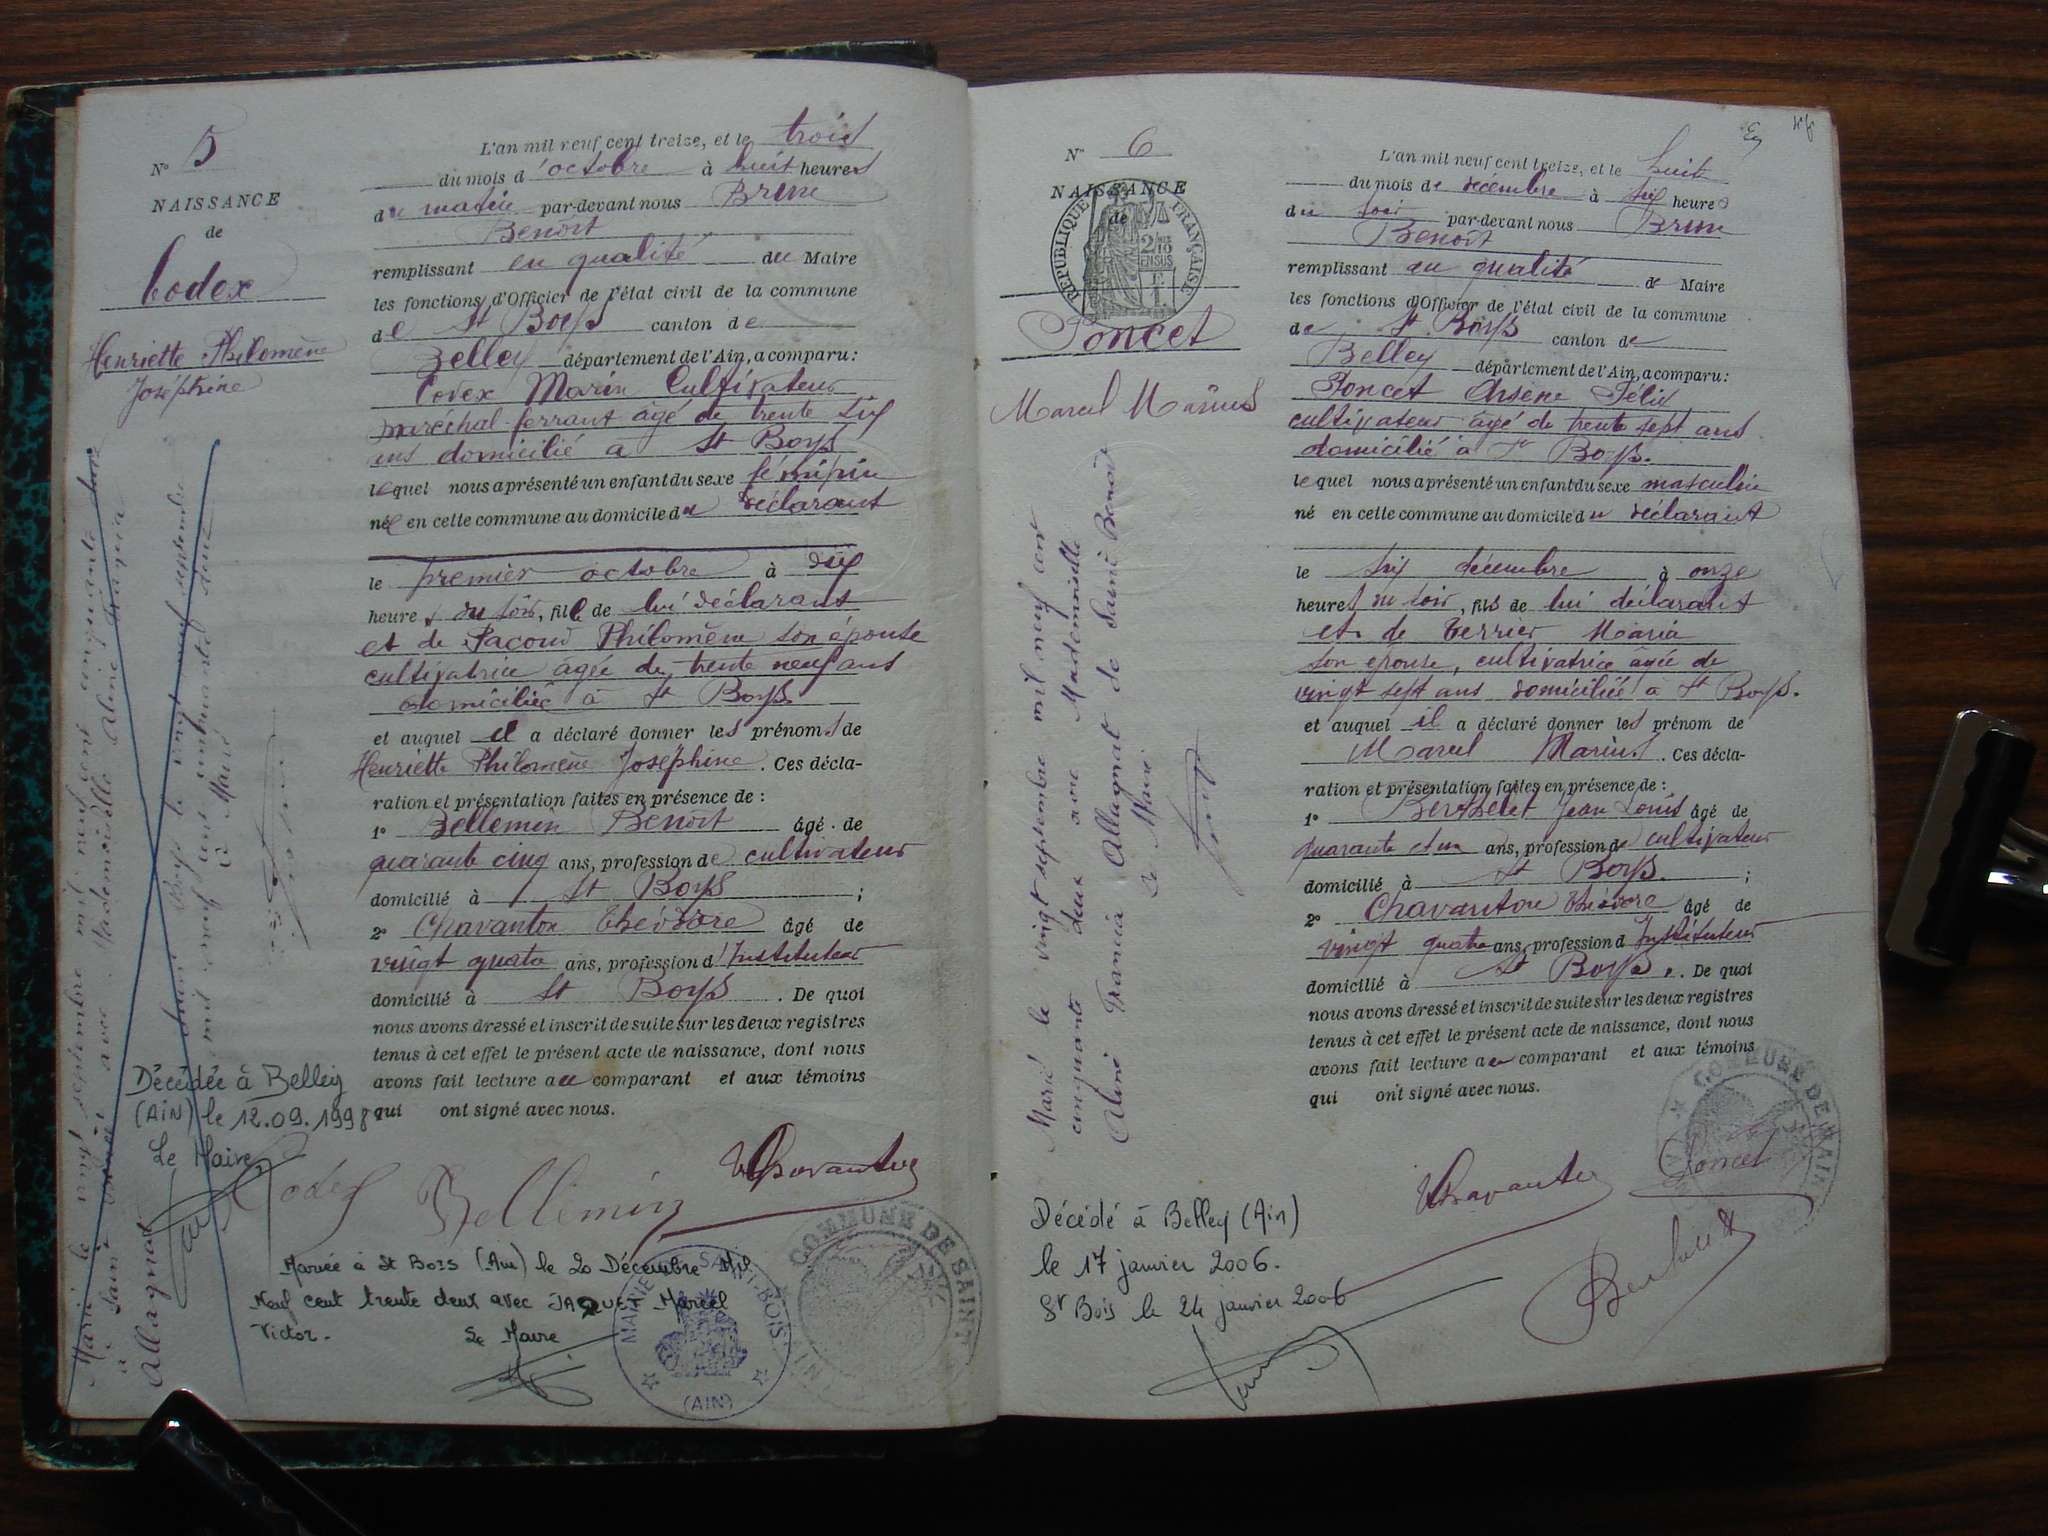 N° 5
NAISSANCE
de
Codex
Henriette Philomène
Joséphine
L'an mil neuf cent treize, et le trois
du mois d'octobre à huit heures
du matin par-devant nous Brun
Benoît
remplissant en qualité du Maire
les fonctions d'Officier de l'état civil de la commune
de St Boys canton de
Belley département de l'Ain, a comparu:
Codex Marin Cultivateur
maréchal-ferrant âgé de trente six
ans domicilié a St Boys
lequel nous a présenté un enfant du sexe féminin
née en cette commune au domicile du déclarant
le premier octobre à dix
heures du soir, fille de lui déclarant
et de Pacoud Philomène son épouse
cultivatrice âgée de trente neuf ans
domiciliée à St Boys
et auquel il a déclaré donner les prénoms de
Henriette Philomène Joséphine. Ces décla-
ration et présentation faites en présence de :
1° Bellemin Benoît âgé de
quarante cinq ans, profession de cultivateur
domicilié à St Boys ;
2° Chavanton Théodore âgé de
vingt quatre ans, profession d'Instituteur
domicilié à St Boys. De quoi
nous avons dressé et inscrit de suite sur les deux registres
tenus à cet effet le présent acte de naissance, dont nous
avons fait lecture au comparant et aux témoins
qui ont signé avec nous.
Codex Bellemin Chavanton
Marié le vingt septembre mil neuf cent cinquante deux
à Saint Benoît avec Mademoiselle Aline Francia
Allagnat
Boys le vingt neuf septembre
mil neuf cent cinquante deux
Le Maire
Décédée à Belley
(Ain) le 12.09.1998
Le Maire
Mariée à St Bois (Ain) le 20 Décembre Mil
Neuf cent trente deux avec JAQUET Marcel
Victor.
Le Maire
MAIRIE SAINT-BOIS
(AIN)
COMMUNE DE SAINT
N° 6
NAISSANCE
de
REPUBLIQUE FRANÇAISE
Poncet
Marcel Marius
L'an mil neuf cent treize, et le huit
du mois de décembre à six heures
du soir par-devant nous Brun
Benoît
remplissant en qualité de Maire
les fonctions d'Officier de l'état civil de la commune
de St Boys canton de
Belley département de l'Ain, a comparu:
Poncet Arsène Félix
cultivateur âgé de trente sept ans
domicilié à St Boys.
lequel nous a présenté un enfant du sexe masculin
né en cette commune au domicile du déclarant
le six décembre à onze
heures du soir, fils de lui déclarant
et de Terrier Maria
son épouse, cultivatrice âgée de
vingt sept ans domiciliée à St Boys.
et auquel il a déclaré donner les prénom de
Marcel Marius. Ces décla-
ration et présentation faites en présence de :
1° Berthelet Jean Louis âgé de
quarante et un ans, profession de cultivateur
domicilié à St Boys. ;
2° Chavanton Théodore âgé de
vingt quatre ans, profession d Instituteur
domicilié à St Boys. De quoi
nous avons dressé et inscrit de suite sur les deux registres
tenus à cet effet le présent acte de naissance, dont nous
avons fait lecture au comparant et aux témoins
qui ont signé avec nous.
Chavanton Poncet
Berthelet
COMMUNE DE SAINT
Marié le vingt septembre mil neuf cent
cinquante deux avec Mademoiselle
Aline Francia Allagnat de Saint Benoît
Le Maire
Décédé à Belley (Ain)
le 17 janvier 2006.
St Bois le 24 janvier 2006